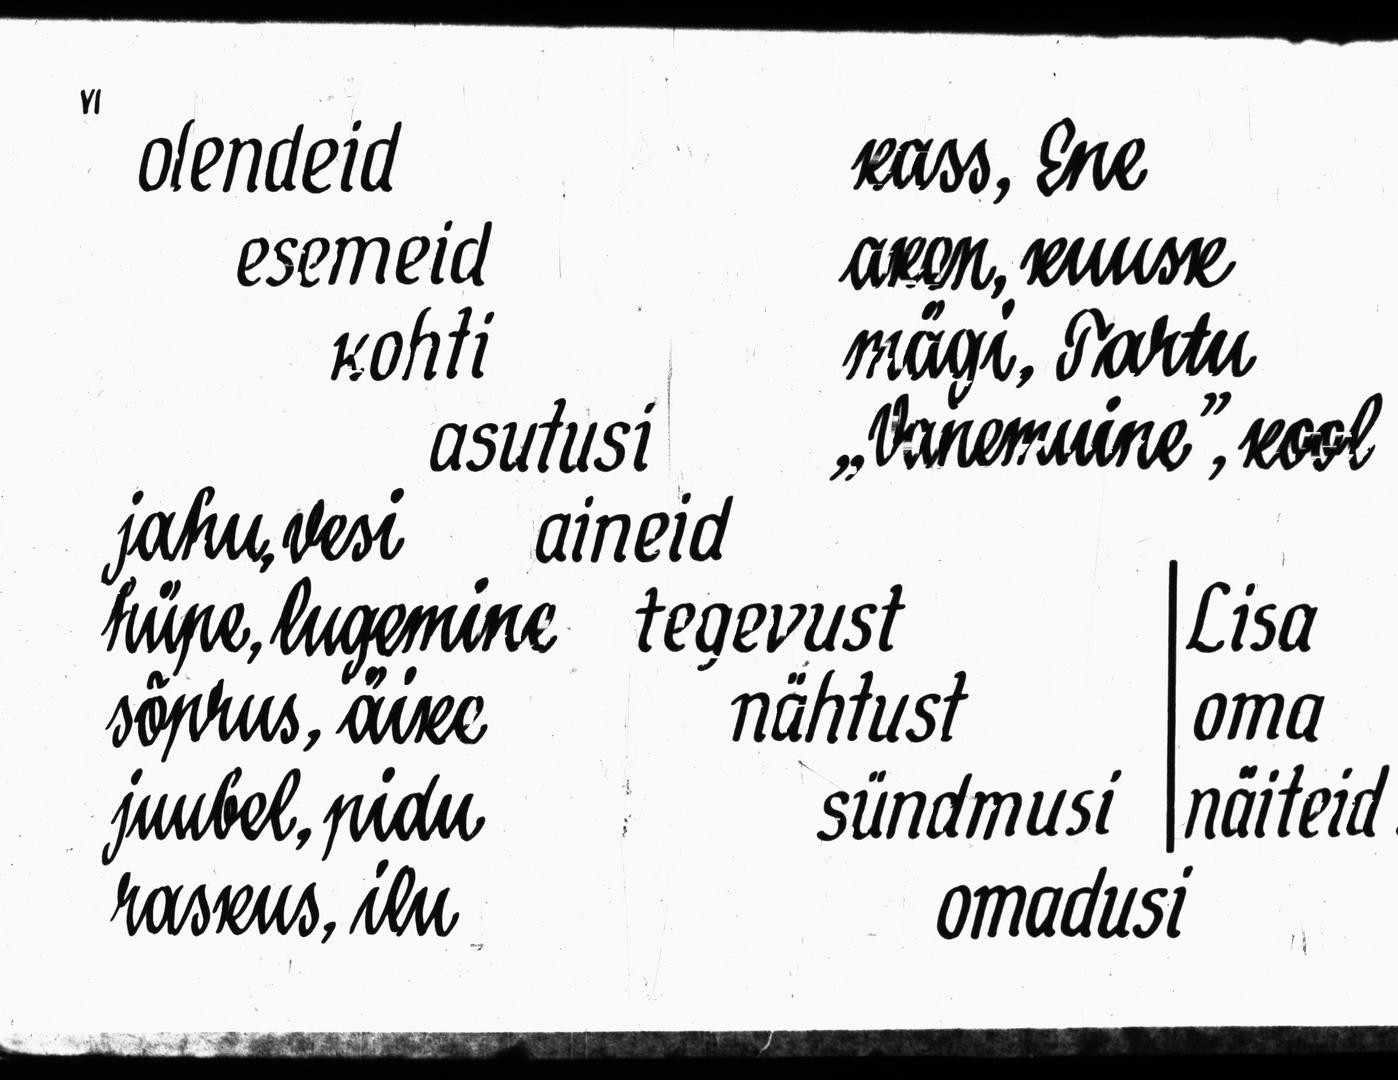 VI
olendeid kass, Ene
esemeid aken, kuusk
kohti mägi, Tartu
asutusi „Vanemuine”, kool
jahu, vesi aineid
hüpe, lugemine tegevust Lisa
sõprus, äike nähtust oma
juubel, pidu sündmusi näiteid.
raskus, ilu omadusi